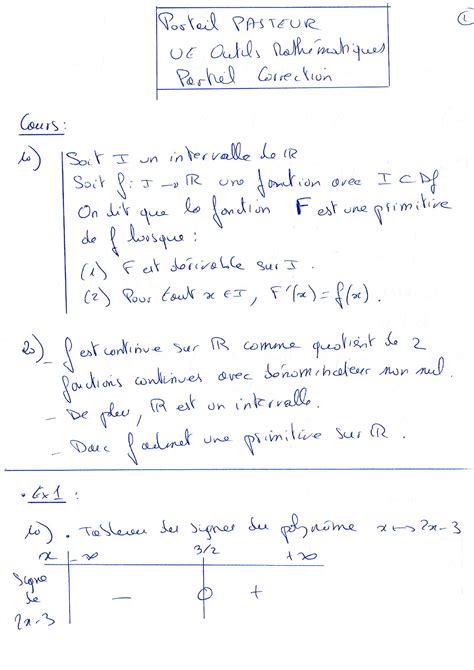 Portail PASTEUR
①
UE Outils Mathématiques
Partiel Correction
Cours:
1o) Soit I un intervalle de ℝ
Soit f: I → ℝ une fonction avec I ⊂ Df
On dit que la fonction F est une primitive
de f lorsque :
(1) F est dérivable sur I.
(2) Pour tout x ∈ I, F'(x) = f(x).
2o) - f est continue sur ℝ comme quotient de 2
fonctions continues avec dénominateur non nul.
- De plus, ℝ est un intervalle.
- Donc f admet une primitive sur ℝ.
• Ex1 :
1o) • Tableau des signes du polynôme x ↦ 2x-3
x -∞ 3/2 +∞
Signe
de
2x-3
- 0 +